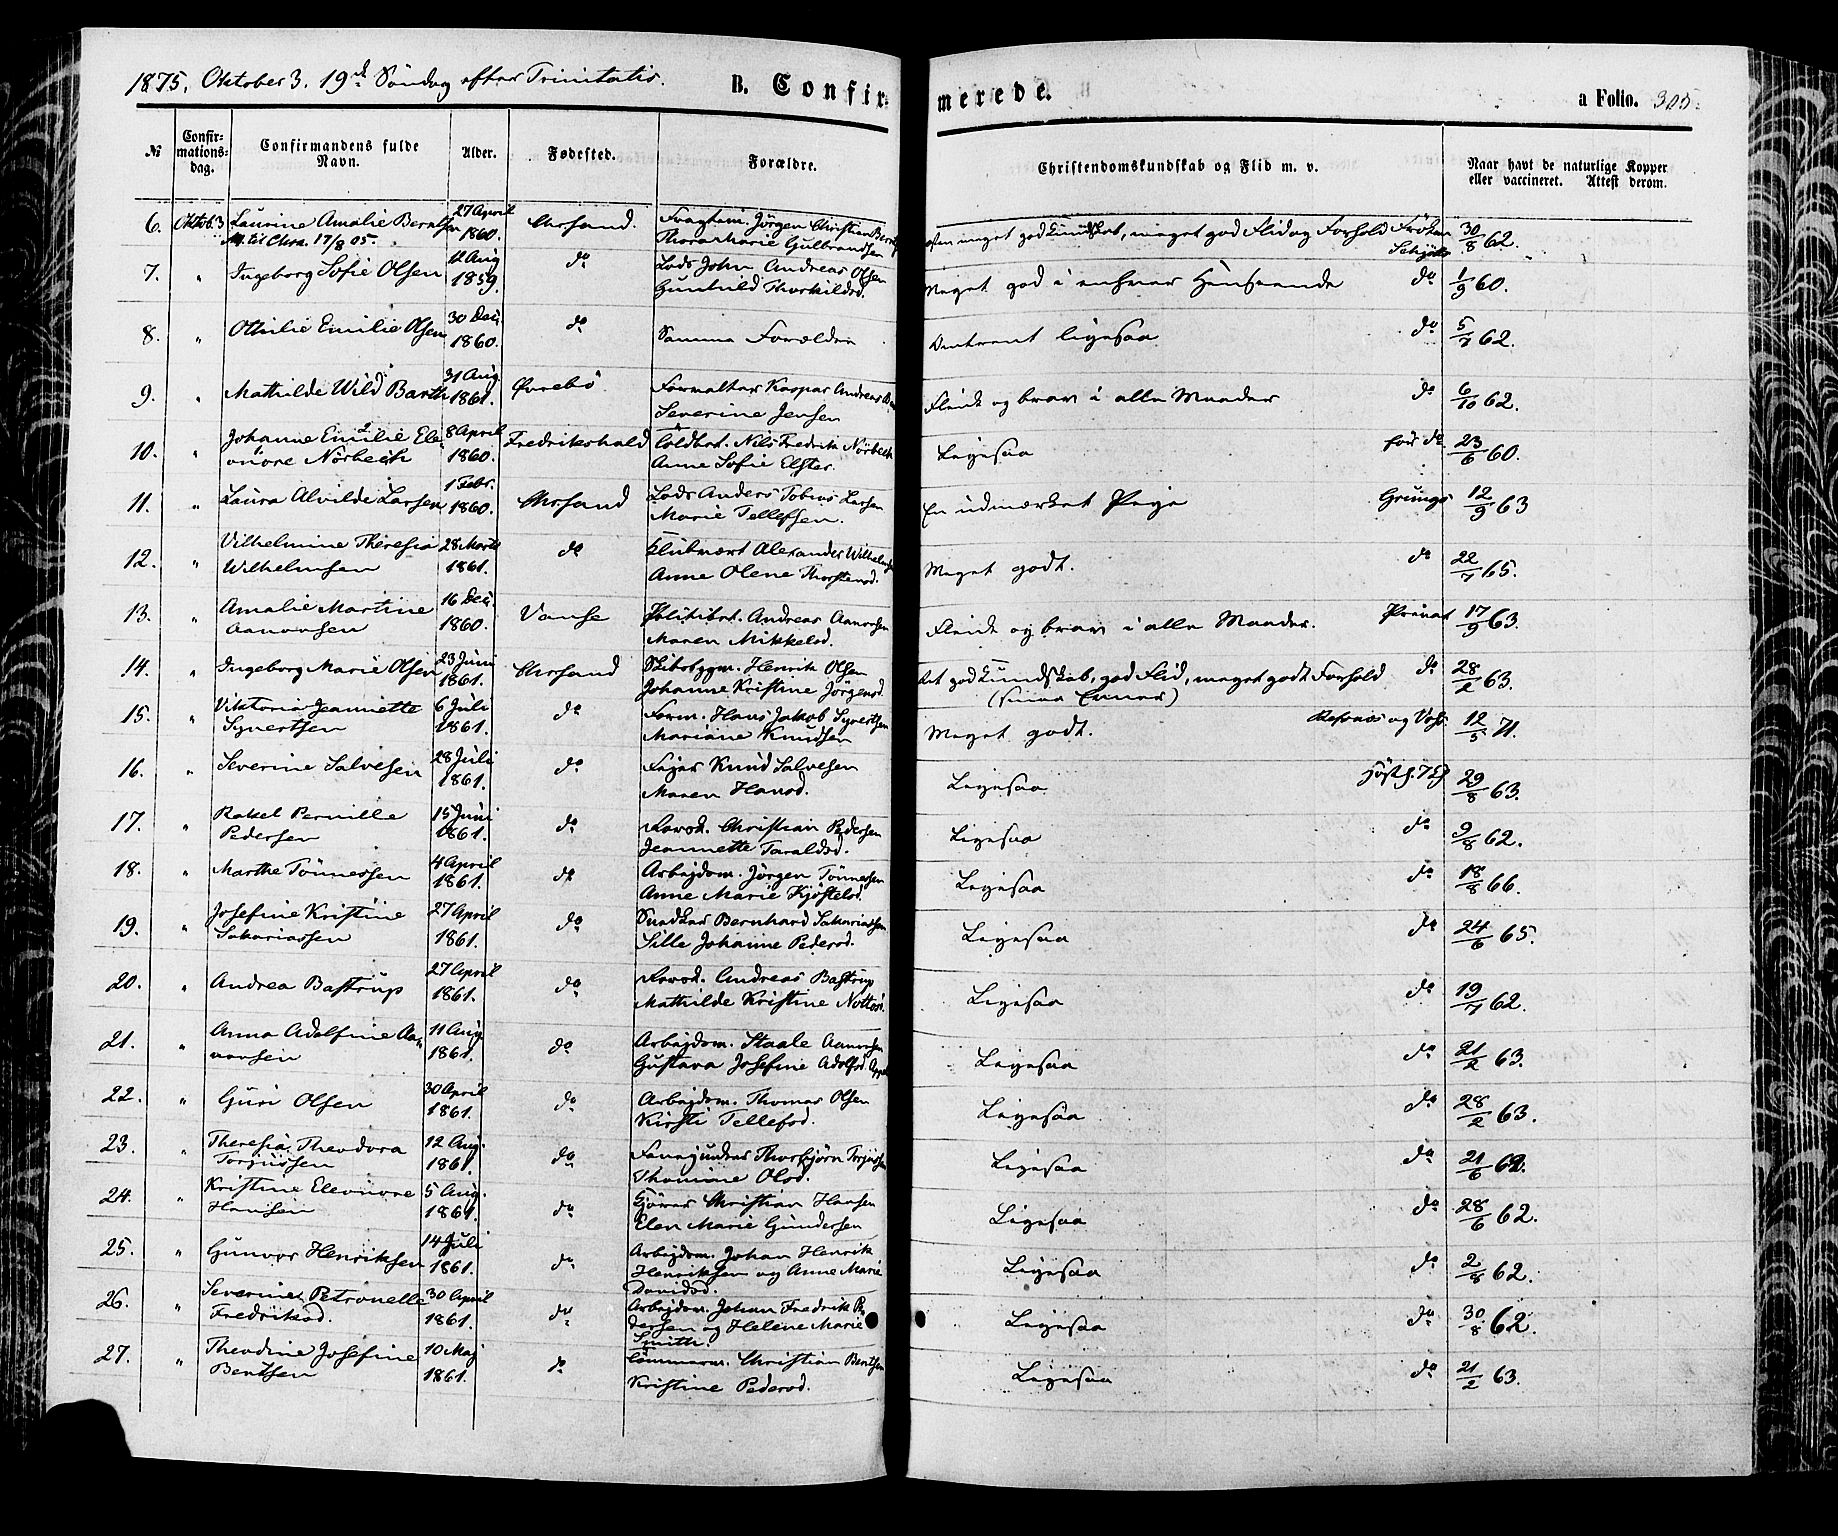 1875. Oktober 3. 19d Søndag efter Trinitatis.
B. Confir-
merede.
a Folio. 305.
№
Confir-
mations-
dag.
Confirmandens fulde
Navn.
Alder.
Fødested.
Forældre.
Christendomskundskab og Flid m. v.
Naar havt de naturlige Kopper
eller vaccineret. Attest derom.
6. Oktob. 3 Laurine Amalie Berntsen 27 April 1860. Chrsand. Jørgen Christian
17/8 05. Thora Marie Gulbrandsen
meget god Kundskab, meget god Flid og Forhold Frøken 30/8 62.
7. " Ingeborg Sofie Olsen Aug 1859. do Lods John Andreas Olsen
Gunhild Thorkildsd.
Meget god i enhver Henseende do 1/9 60.
8. " Othilie Emilie Olsen 30 Dec. 1860. do Samme Forældre
Omtrent ligesaa do 5/7 62.
9. " Mathilde Wild Barth 31 Aug 1861. Øvrebø. Forvalter Kaspar Andreas
Severine Jensen
Flink og brav i alle Maader do 6/10 62.
10. " Johanne Emilie Ele-
onore Nørbech 8 April 1860. Fredrikshald Toldbet. Nils Fredrik Nørbech
Anne Sofie Elster.
Ligesaa do 23/6 60.
11. " Laura Alvilde Larsen 1 Febr. 1860. Chrsand Lods Anders Tobias Larsen
Marie Tellefsen.
En udmærket Pige 12/9 63
12. " Vilhelmine Theresia
Wilhelmsen 28 Marts 1861. do Klubvært Alexander Wilhelmsen
Anne Olene Thorstensd.
Meget godt. do 22/7 65.
13. " Amalie Martine
Aanonsen 16 Dec. 1860. Vanse Politibet. Andreas Aanonsen
Maren Mikkelsd.
Flink og brav i alle Maader. Privat 17/9 63.
14. " Ingeborg Marie Olsen 23 Juni 1861. Chrsand Skibsbygm. Henrik Olsen
Johanne Kristine Jørgensd.
god Kundskab, god Flid, meget godt Forhold do 28/2 63.
15. " Viktoria Jeannette
Syvertsen 6 Juli 1861. do Form. Hans Jakob Syvertsen
Mariane Knudsen
Meget godt. 12/5 71.
16. " Severine Salvesen 28 Juli 1861. do Knud Salvesen
Maren Hansd.
Ligesaa 29/8 63.
17. " Rakel Pernille
Pedersen 15 Juni 1861. do Christian Pedersen
Jeannette Taraldsd.
Ligesaa do 9/8 62.
18. " Marthe Tønnessen 4 April 1861. do Arbejdsm. Jørgen Tønnessen
Anne Marie Kjøstelsd.
Ligesaa do 18/8 66.
19. " Josefine Kristine
Sakariassen 27 April 1861. do Snedker Bernhard Sakariassen
Sille Johanne Pedersd.
Ligesaa do 24/6 65.
20. " Andrea Bastrup 27 April 1861. do Andreas Bastrup
Mathilde Kristine
Ligesaa do 19/7 62.
21. " Anna Adolfine Aa-
nonsen 11 Aug. 1861. do Arbejdsm. Staale Aanonsen
Gustava Josefine Adolfsd.
Ligesaa do 21/2 63.
22. " Guri Olsen 30 April 1861. do Arbejdsm. Thomas Olsen
Kirsti Tellefsd.
Ligesaa do 28/2 63.
23. " Theresia Theodora
Torjussen 12 Aug. 1861. do Thorbjørn Torjussen
Thomine Olsd.
Ligesaa do 21/6 62.
24. " Kristine Eleonore
Hansen 5 Aug. 1861. do Christian Hansen
Elen Marie Gundersen
Ligesaa do 28/6 62.
25. " Gunvor Henriksen 14 Juli 1861. do Arbejdsm. Johan Henrik
Henriksen og Anne Marie
Davidsd.
Ligesaa do 2/8 62.
26. " Severine Petronelle
Fredriksd. 30 April 1861. do Arbejdsm. Johan Fredrik Pe-
dersen og Helene Marie
Smith.
Ligesaa do 30/8 62.
27. " Theodine Josefine
Bentsen 10 Maj 1861. do Tømmerm. Christian Bentsen
Kristine Pedersd.
Ligesaa do 21/2 63.